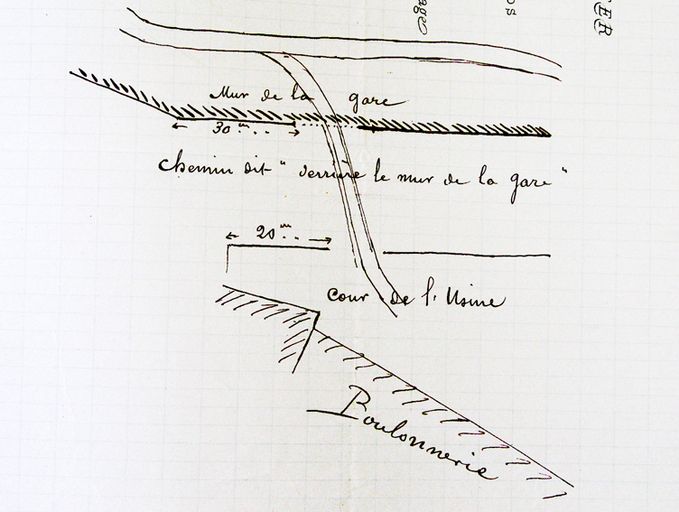 Mur de la gare
30 m..
Chemin dit " derrière le mur de la gare "
20 m..
Cour de l'Usine
Boulonnerie